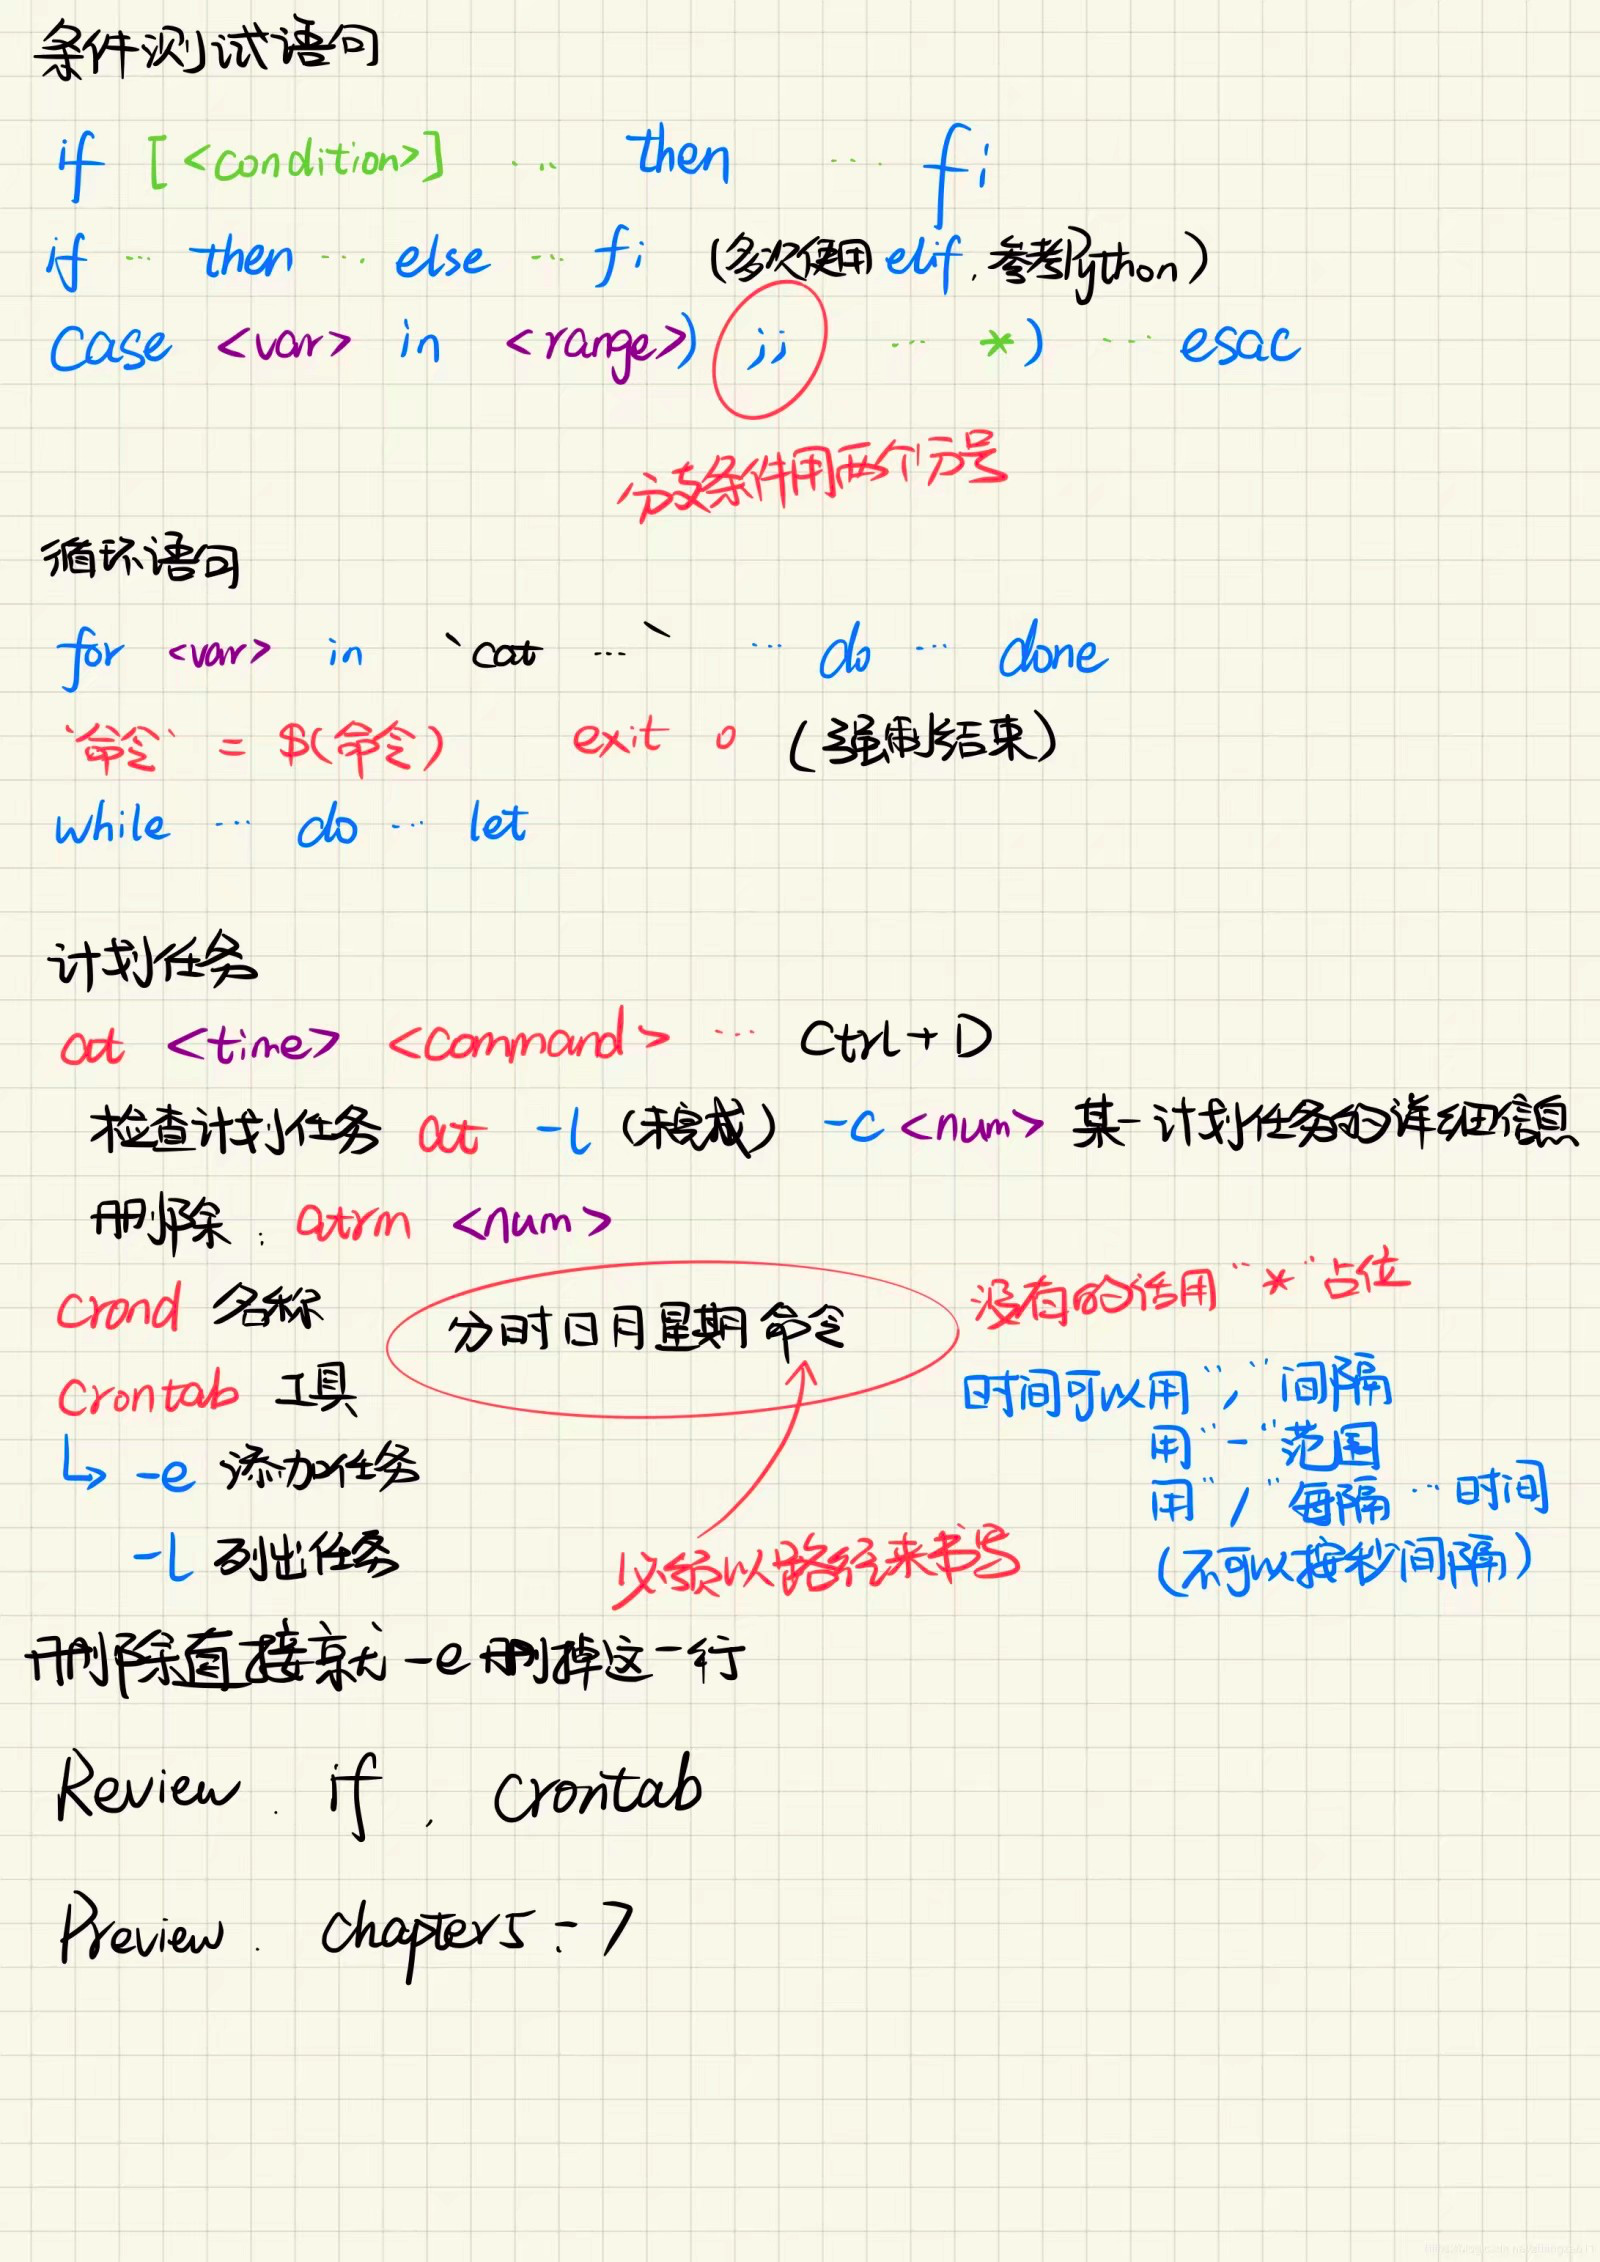 条件测试语句
if [<condition>] ... then ... fi
if ... then ... else ... fi (多次使用elif,参考Python)
case <var> in <range>) ;; ... *) ... esac
分支条件用两个分号
循环语句
for <var> in `cat ...` ... do ... done
`命令` = $(命令) exit 0 (强制结束)
while ... do ... let
计划任务
at <time> <command> ... Ctrl+D
检查计划任务 at -l (未完成) -c <num> 某一计划任务的详细信息
删除: atrm <num>
crond 名称
分时日月星期 命令
没有的话用"*"占位
crontab 工具
时间可以用","间隔
用"-"范围
↳ -e 添加任务
用"/"每隔...时间
-l 列出任务
必须以路径来书写
(不可以按秒间隔)
删除直接就 -e 删掉这一行
Review. if, crontab
Preview. chapter5-7